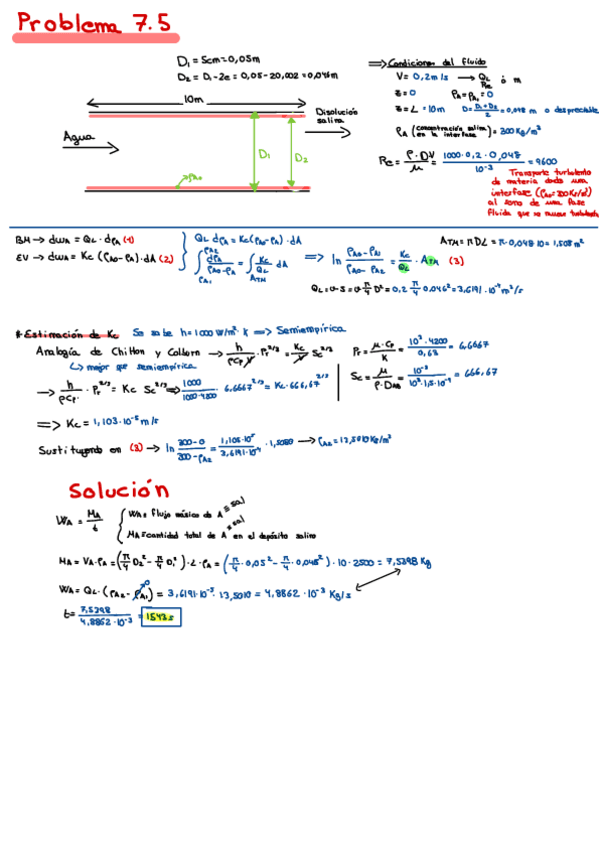 Problema 7.5
D₁ = 5cm = 0,05m
D₂ = D₁-2e = 0,05-2·0,002 = 0,046m
10m
Agua
Disolución salina
D₁
D₂
ρA0
⟹ Condiciones del fluido
V = 0,2m/s → QL ó m
Re
z = 0 ρA = ρA1 = 0
z = L = 10m D = (D₁+D₂)/2 = 0,048 m o despreciable
ρA (concentración salina en la interfase) = 300 Kg/m³
Re = ρ·DV/μ = 1000·0,2·0,048/10⁻³ = 9600
Transporte turbulento
de materia desde una
interfase (ρA0=300Kg/m³)
al seno de una fase
fluida que se mueve turbulenta
BM → dwA = QL·dρA (1)
EV → dwA = Kc (ρA0-ρA)·dA (2)
QL dρA = Kc(ρA0-ρA)·dA
∫ρA1^ρA2 dρA/(ρA0-ρA) = ∫ATM Kc/QL dA
⟹ ln (ρA0-ρA1)/(ρA0-ρA2) = Kc/QL · ATM (3)
ATM = πDL = π·0,048·10 = 1,508 m²
QL = v·S = v π/4 D² = 0,2 π/4 0,048² = 3,6191·10⁻⁴ m³/s
* Estimación de Kc Se sabe h=1000 W/m²·K ⟹ Semiempírica
Analogía de Chilton y Colburn → h/(ρCp V)·Pr^2/3 = Kc/V Sc^2/3
↳ mejor que semiempírica
Pr = μ·Cp/K = 10⁻³·4200/0,63 = 6,6667
Sc = μ/(ρ·DAB) = 10⁻³/(10³·1,5·10⁻⁹) = 666,67
→ h/(ρCp) · Pr^2/3 = Kc Sc^2/3 ⟹ 1000/(1000·4200) · 6,6667^2/3 = Kc·666,67^2/3
⟹ Kc = 1,103·10⁻⁵ m/s
Sustituyendo en (3) → ln (300-0)/(300-ρA2) = 1,103·10⁻⁵/3,6191·10⁻⁴ · 1,5080 → ρA2 = 13,5010 Kg/m³
Solución
WA = MA/t
WA = flujo másico de A ≡ sal
MA = cantidad total de A ≡ sal en el depósito salino
MA = VA·ρA = (π/4 D₂² - π/4 D₁²)·L·ρA = (π/4·0,05² - π/4·0,048²)·10·2500 = 7,5398 Kg
WA = QL·(ρA2 - ρA1) = 3,6191·10⁻⁴·13,5010 = 4,8862·10⁻³ Kg/s
0
t = 7,5398/4,8862·10⁻³ = 1543 s